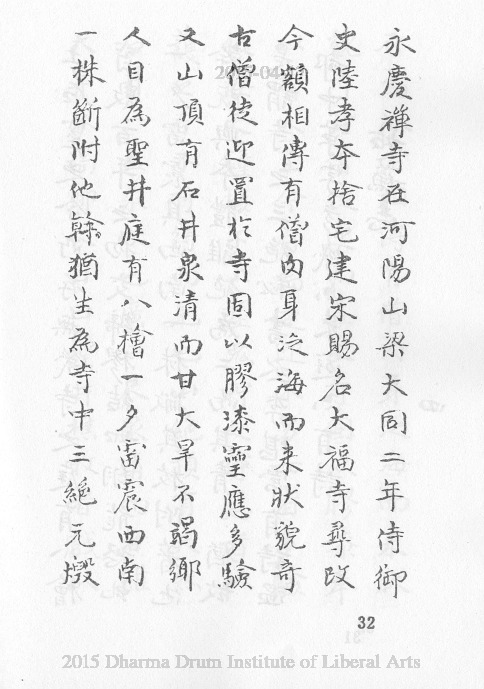 永慶禪寺在河陽山梁大同二年侍御
史陸孝本捨宅建宋賜名大福寺尋改
今額相傳有僧肉身泛海而来狀貌奇
古僧徒迎置於寺固以膠漆靈應多驗
又山頂有石井泉清而甘大旱不竭鄉
人目為聖井庭有八檜一夕雷震西南
一株斷附他榦猶生為寺中三絕元燬
32
2015 Dharma Drum Institute of Liberal Arts